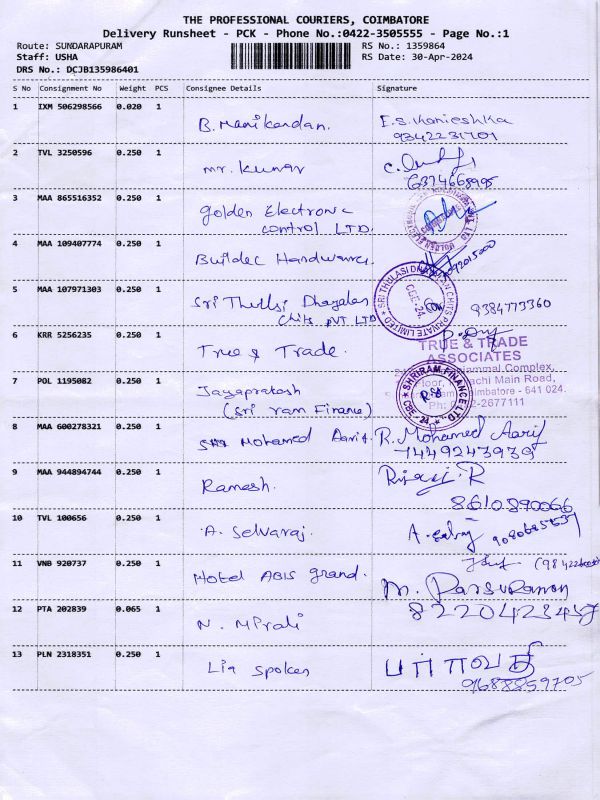 THE PROFESSIONAL COURIERS, COIMBATORE
Delivery Runsheet - PCK - Phone No.:0422-3505555 - Page No.:1
Route: SUNDARAPURAM
RS No.: 1359864
Staff: USHA
RS Date: 30-Apr-2024
DRS No.: DCJB135986401
S No Consignment No Weight PCS Consignee Details Signature
1 IXM 506298566 0.020 1 B. Manikandan. E.S. Kanieshka
9342231701
2 TVL 3250596 0.250 1 mr. kumar
6374668995
3 MAA 865516352 0.250 1 golden Electronic
control LTD.
4 MAA 109407774 0.250 1 Buildec Hardwares
5 MAA 107971303 0.250 1 Sri Thulsi Dhayalan 9384773360
chits PVT LTD
SRI THOLASI CHITS PRIVATE LIMITED
CBE-24
6 KRR 5256235 0.250 1 True & Trade.
TRUE & TRADE
ASSOCIATES
Complex,
Main Road,
Coimbatore - 641 024.
2677111
7 POL 1195082 0.250 1 Jayapratash
(Sri ram Finance)
SHRIRAM FINANCE LTD
CBE-24
8 MAA 600278321 0.250 1 Mohamed Aarif. R. Mohamed Aarif
7449243939
9 MAA 944894744 0.250 1 Ramesh. R
8610890066
10 TVL 100656 0.250 1 A. Selvaraj.
11 VNB 920737 0.250 1 Hotel ABIS grand.
M. Parsuraman
12 PTA 202839 0.065 1 N. Mirali
8220423457
13 PLN 2318351 0.250 1 Lia spoken பார்வதி
9688859705